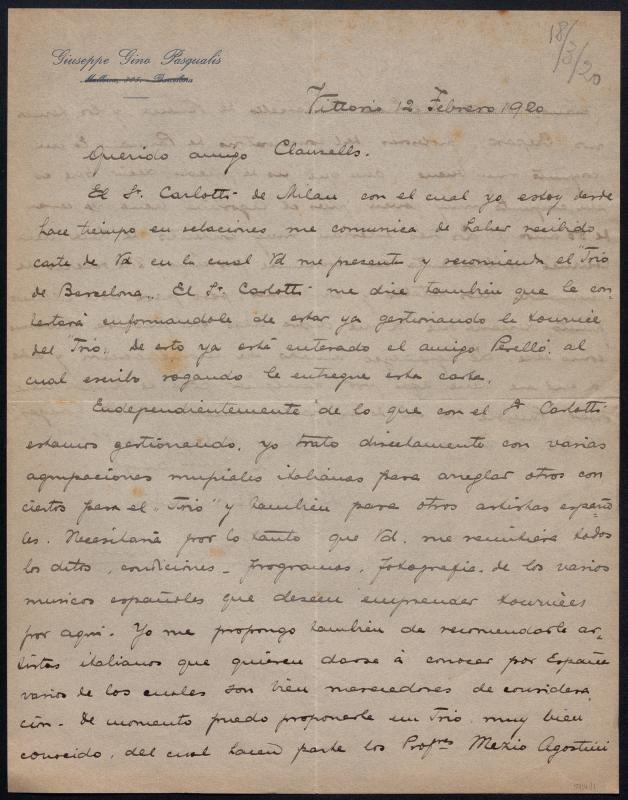 18/3/20
Giuseppe Gino Pasqualis
Mallorca, 305, - Barcelona
Vittorio 12 Febrero 1920
Querido amigo Clausells.
El Sr. Carlotti de Milan con el cual yo estoy desde
hace tiempo en relaciones me comunica de haber recibido
carta de Vd en la cual Vd me presenta y recomienda el "Trio
de Barcelona„. El Sr Carlotti me dice también que le con-
testará enformandole de estar ya gestionando la tournèe
del "Trio„. De esto ya está enterado el amigo Perelló, al
cual escribo rogando le entregue esta carta.
Endependientemente de lo que con el Sr Carlotti
estamos gestionando, yo trato directamente con varias
agrupaciones musicales italianas para arreglar otros con
ciertos para el „Trio" y también para otros artistas españo
les. Necesitaría por lo tanto que Vd. me remitiera todos
los ditos, condiciones - programas, fotografia, de los varios
musicos españoles que deseen emprender tournèes
por aqui. Yo me propongo también de recomendarle ar-
tistas italianos que quieren darse à conocer por España
varios de los cuales son bien merecedores de considera
ción - De momento puedo proponerle un Trio, muy bien
conocido, del cual hacen parte los Profres Mezio Agostini